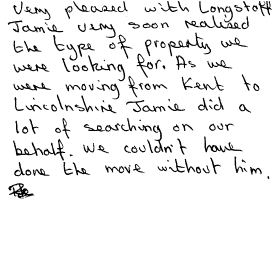 Very pleased with Longstaff
Jamie very soon realised
the type of property we
were looking for. As we
were moving from Kent to
Lincolnshire Jamie did a
lot of searching on our
behalf. We couldn't have
done the move without him.